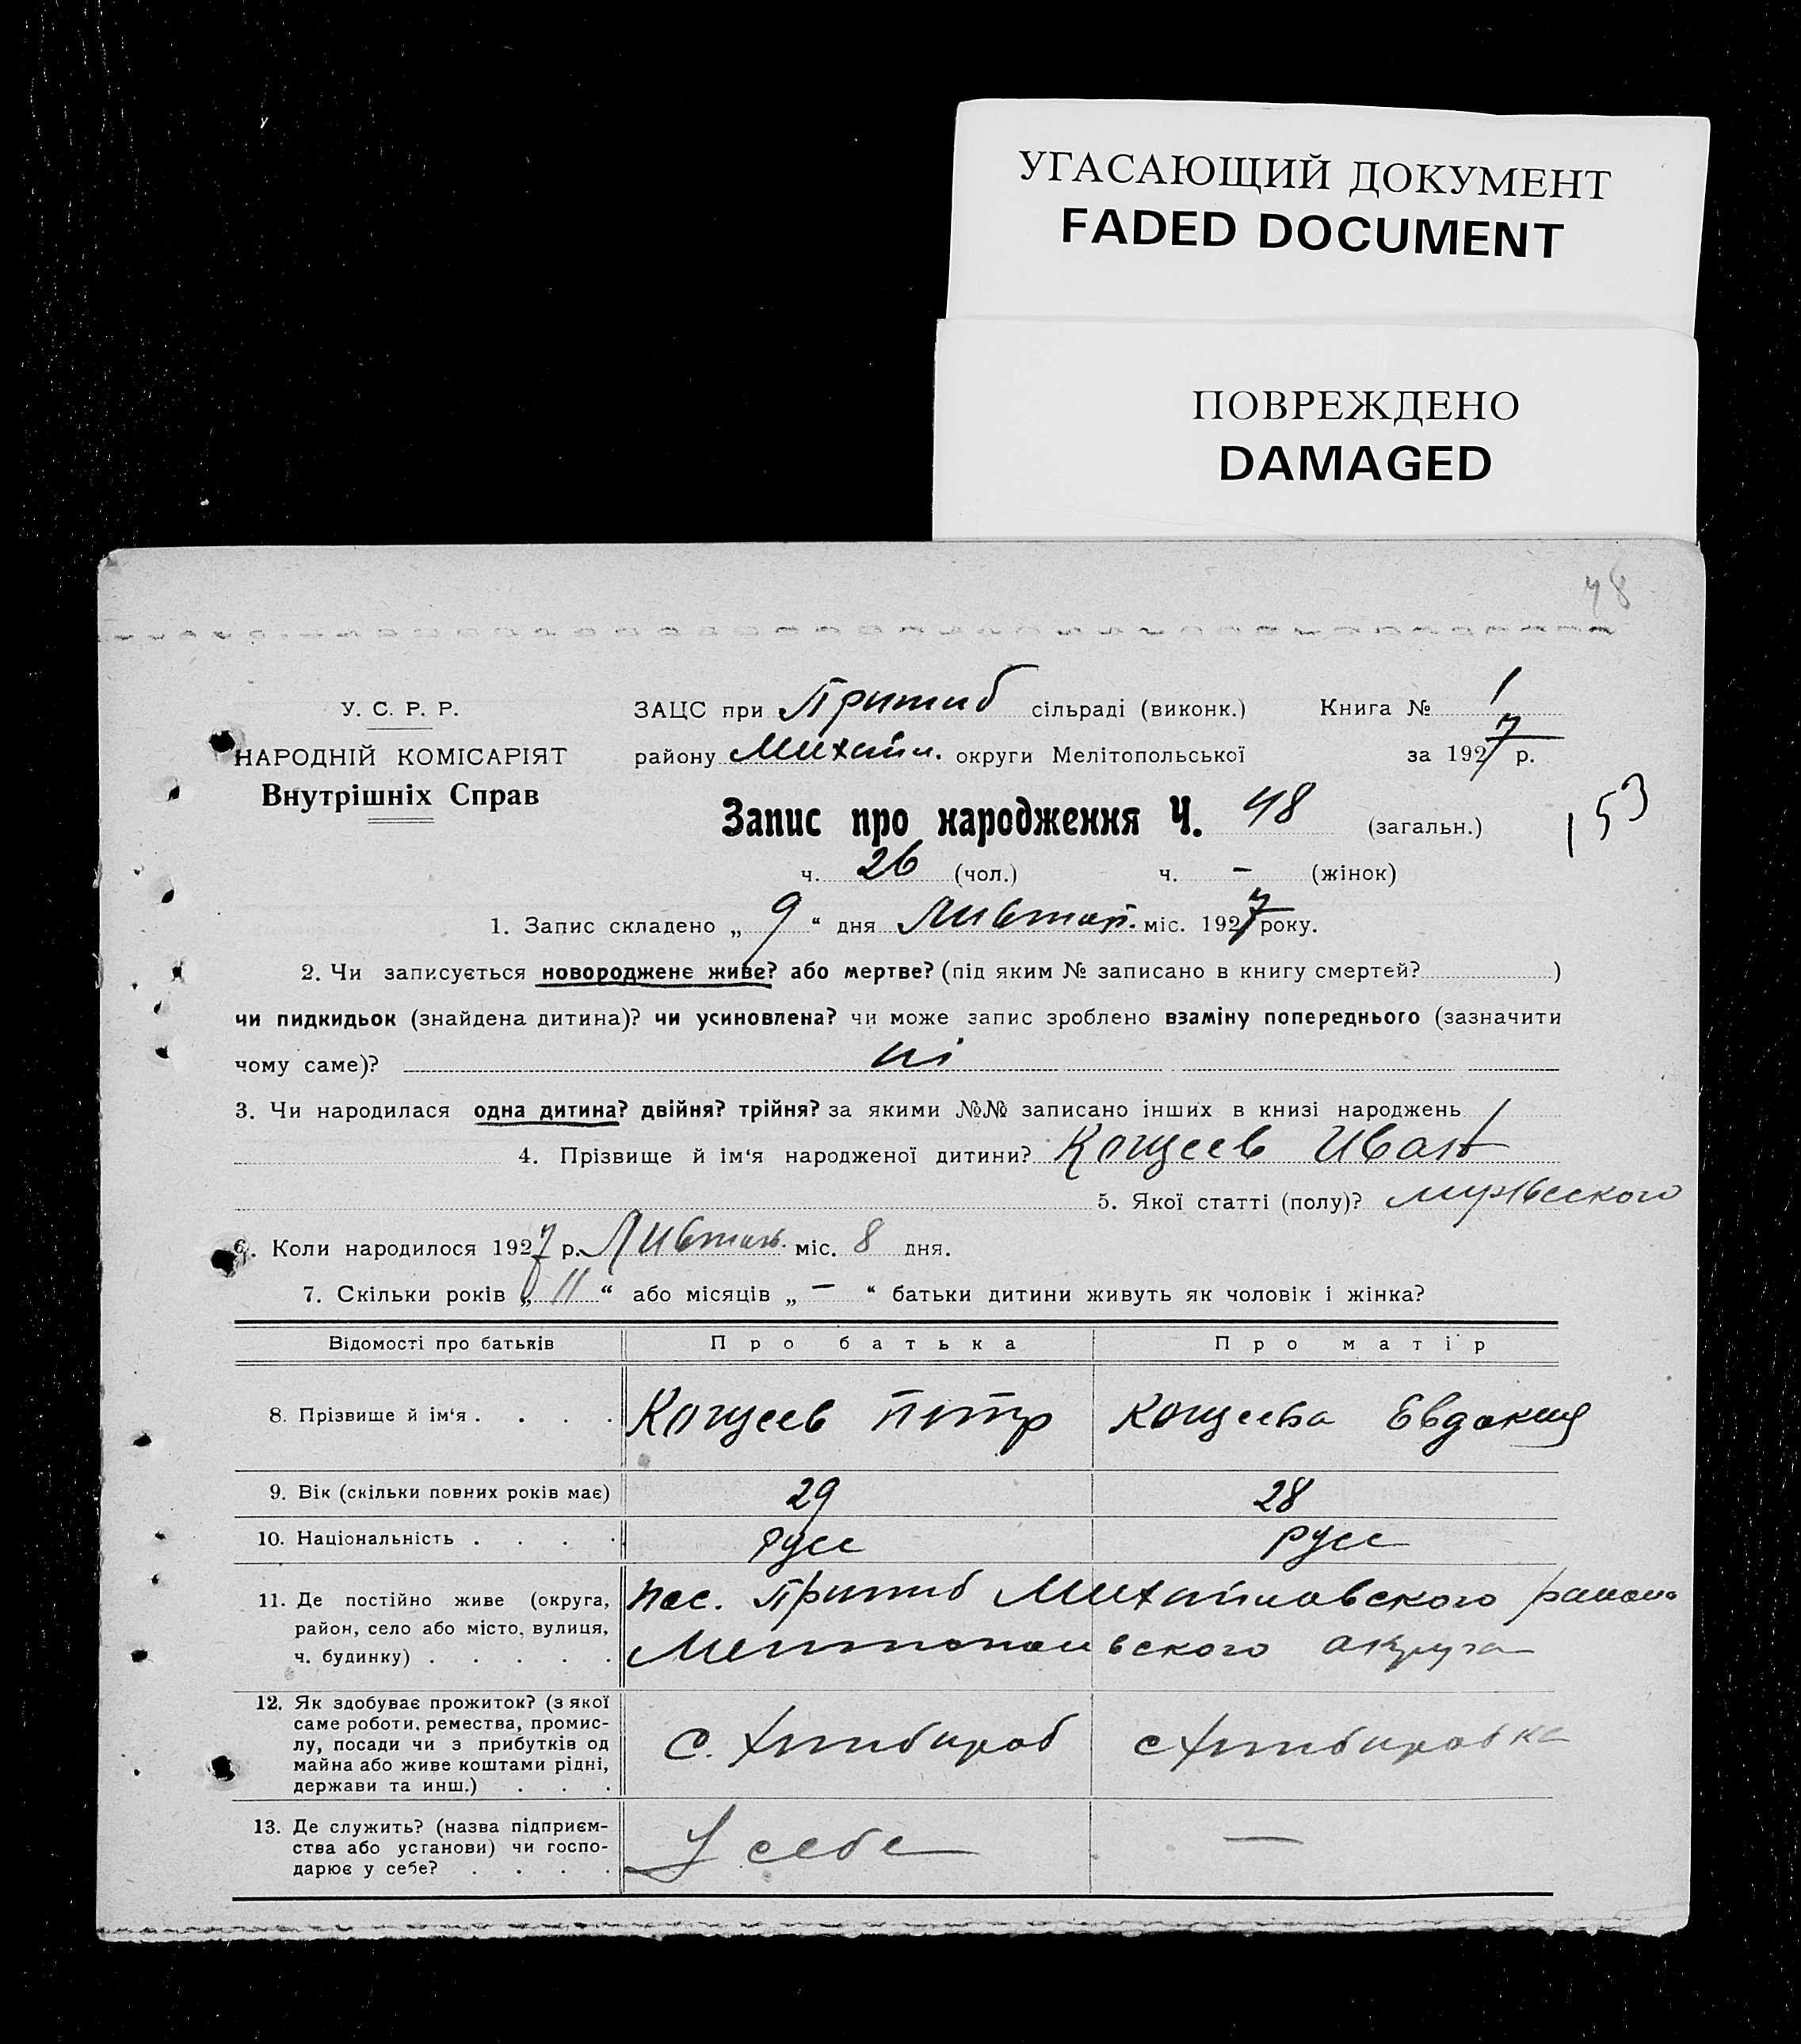 УГАСАЮЩИЙ ДОКУМЕНТ
FADED DOCUMENT
ПОВРЕЖДЕНО
DAMAGED
48
У. С. Р. Р.
НАРОДНІЙ КОМІСАРІЯТ
Внутрішніх Справ
ЗАЦС при Пришиб сільраді (виконк.) Книга № 1
району Михайл. округи Мелітопольської за 1927 р.
Запис про народження Ч. 48 (загальн.)
153
ч. 26 (чол.) ч. — (жінок)
1. Запис складено „ 9 “ дня Листоп. міс. 1927 року.
2. Чи записується новороджене живе? або мертве? (під яким № записано в книгу смертей? )
чи пидкидьок (знайдена дитина)? чи усиновлена? чи може запис зроблено взаміну попереднього (зазначити
чому саме)? ні
3. Чи народилася одна дитина? двійня? трійня? за якими №№ записано інших в книзі народжень /
4. Прізвище й ім‘я народженої дитини? Кощеев Иван
5. Якої статті (полу)? мужеского
6. Коли народилося 1927 р. міс. 8 дня.
7. Скільки років „ 11 “ або місяців „ — “ батьки дитини живуть як чоловік і жінка?
Відомості про батьків Про батька Про матір
8. Прізвище й ім‘я . . . . Кощеев Петр Кощеева Евдокия
9. Вік (скільки повних років має) 29 28
10. Національність . . . . Русс Русс
11. Де постійно живе (округа, район, село або місто, вулиця, ч. будинку) . . . . .
пос. Пришиб Михайловского района
Мелитопольского округа
12. Як здобуває прожиток? (з якої саме роботи, ремества, промислу, посади чи з прибутків од майна або живе коштами рідні, держави та инш.) . . .
С. хлибороб с хлиборобка
13. Де служить? (назва підприємства або установи) чи господарює у себе? . . . .
У себе —